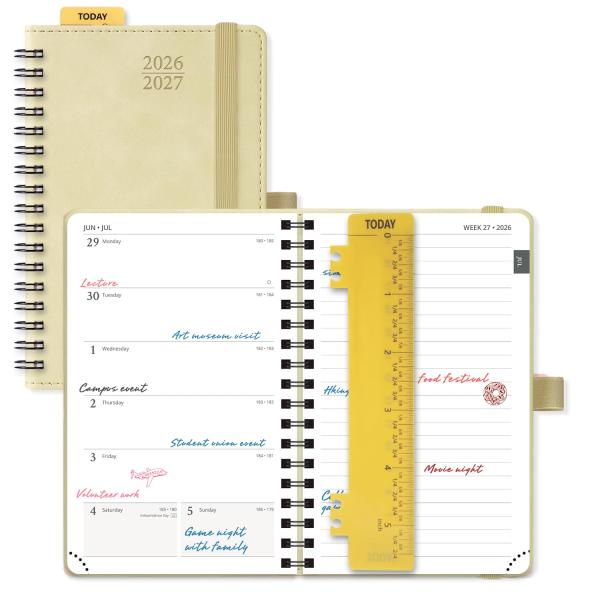 TODAY
2026
2027
JUN • JUL
29 Monday
180 • 185
Lecture
30 Tuesday
181 • 184
Art museum visit
1 Wednesday
182 • 183
Campus event
2 Thursday
183 • 182
Student union event
3 Friday
184 • 181
Volunteer work
4 Saturday
185 • 180
Independence Day
5 Sunday
186 • 179
Game night
with family
TODAY
WEEK 27 • 2026
JUL
0
1/4
2/4
3/4
1
1/4
2/4
3/4
2
1/4
2/4
3/4
3
1/4
2/4
3/4
4
1/4
2/4
3/4
5
inch
1/4
2/4
Hiking
Food festival
Movie night